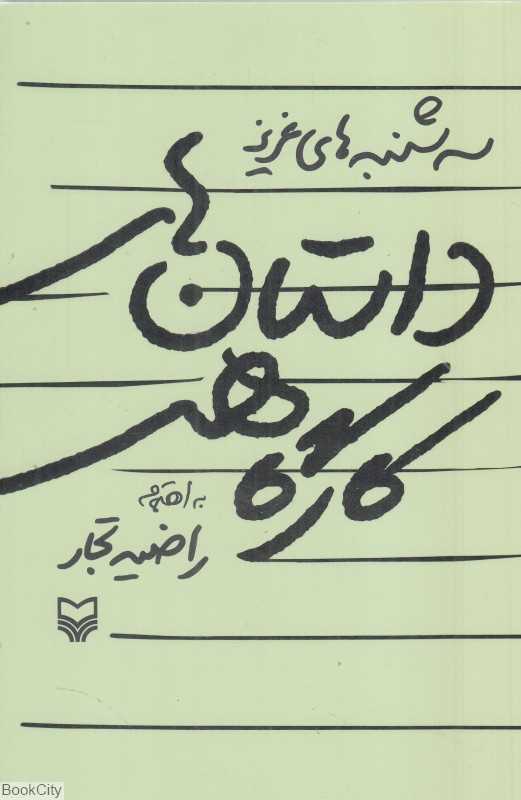 سه شنبه های عزیز
داستان های
کارگاه هنر
به اهتمام
راضیه تجار
BookCity